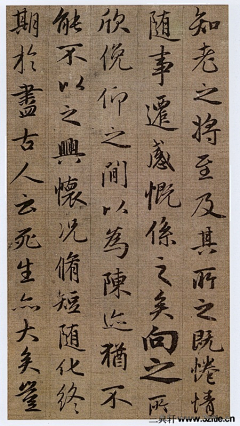 知老之將至及其所之既惓情
随事遷感慨係之矣向之所
欣俛仰之間以為陳迹猶不
能不以之興懷况脩短随化終
期於盡古人云死生亦大矣豈